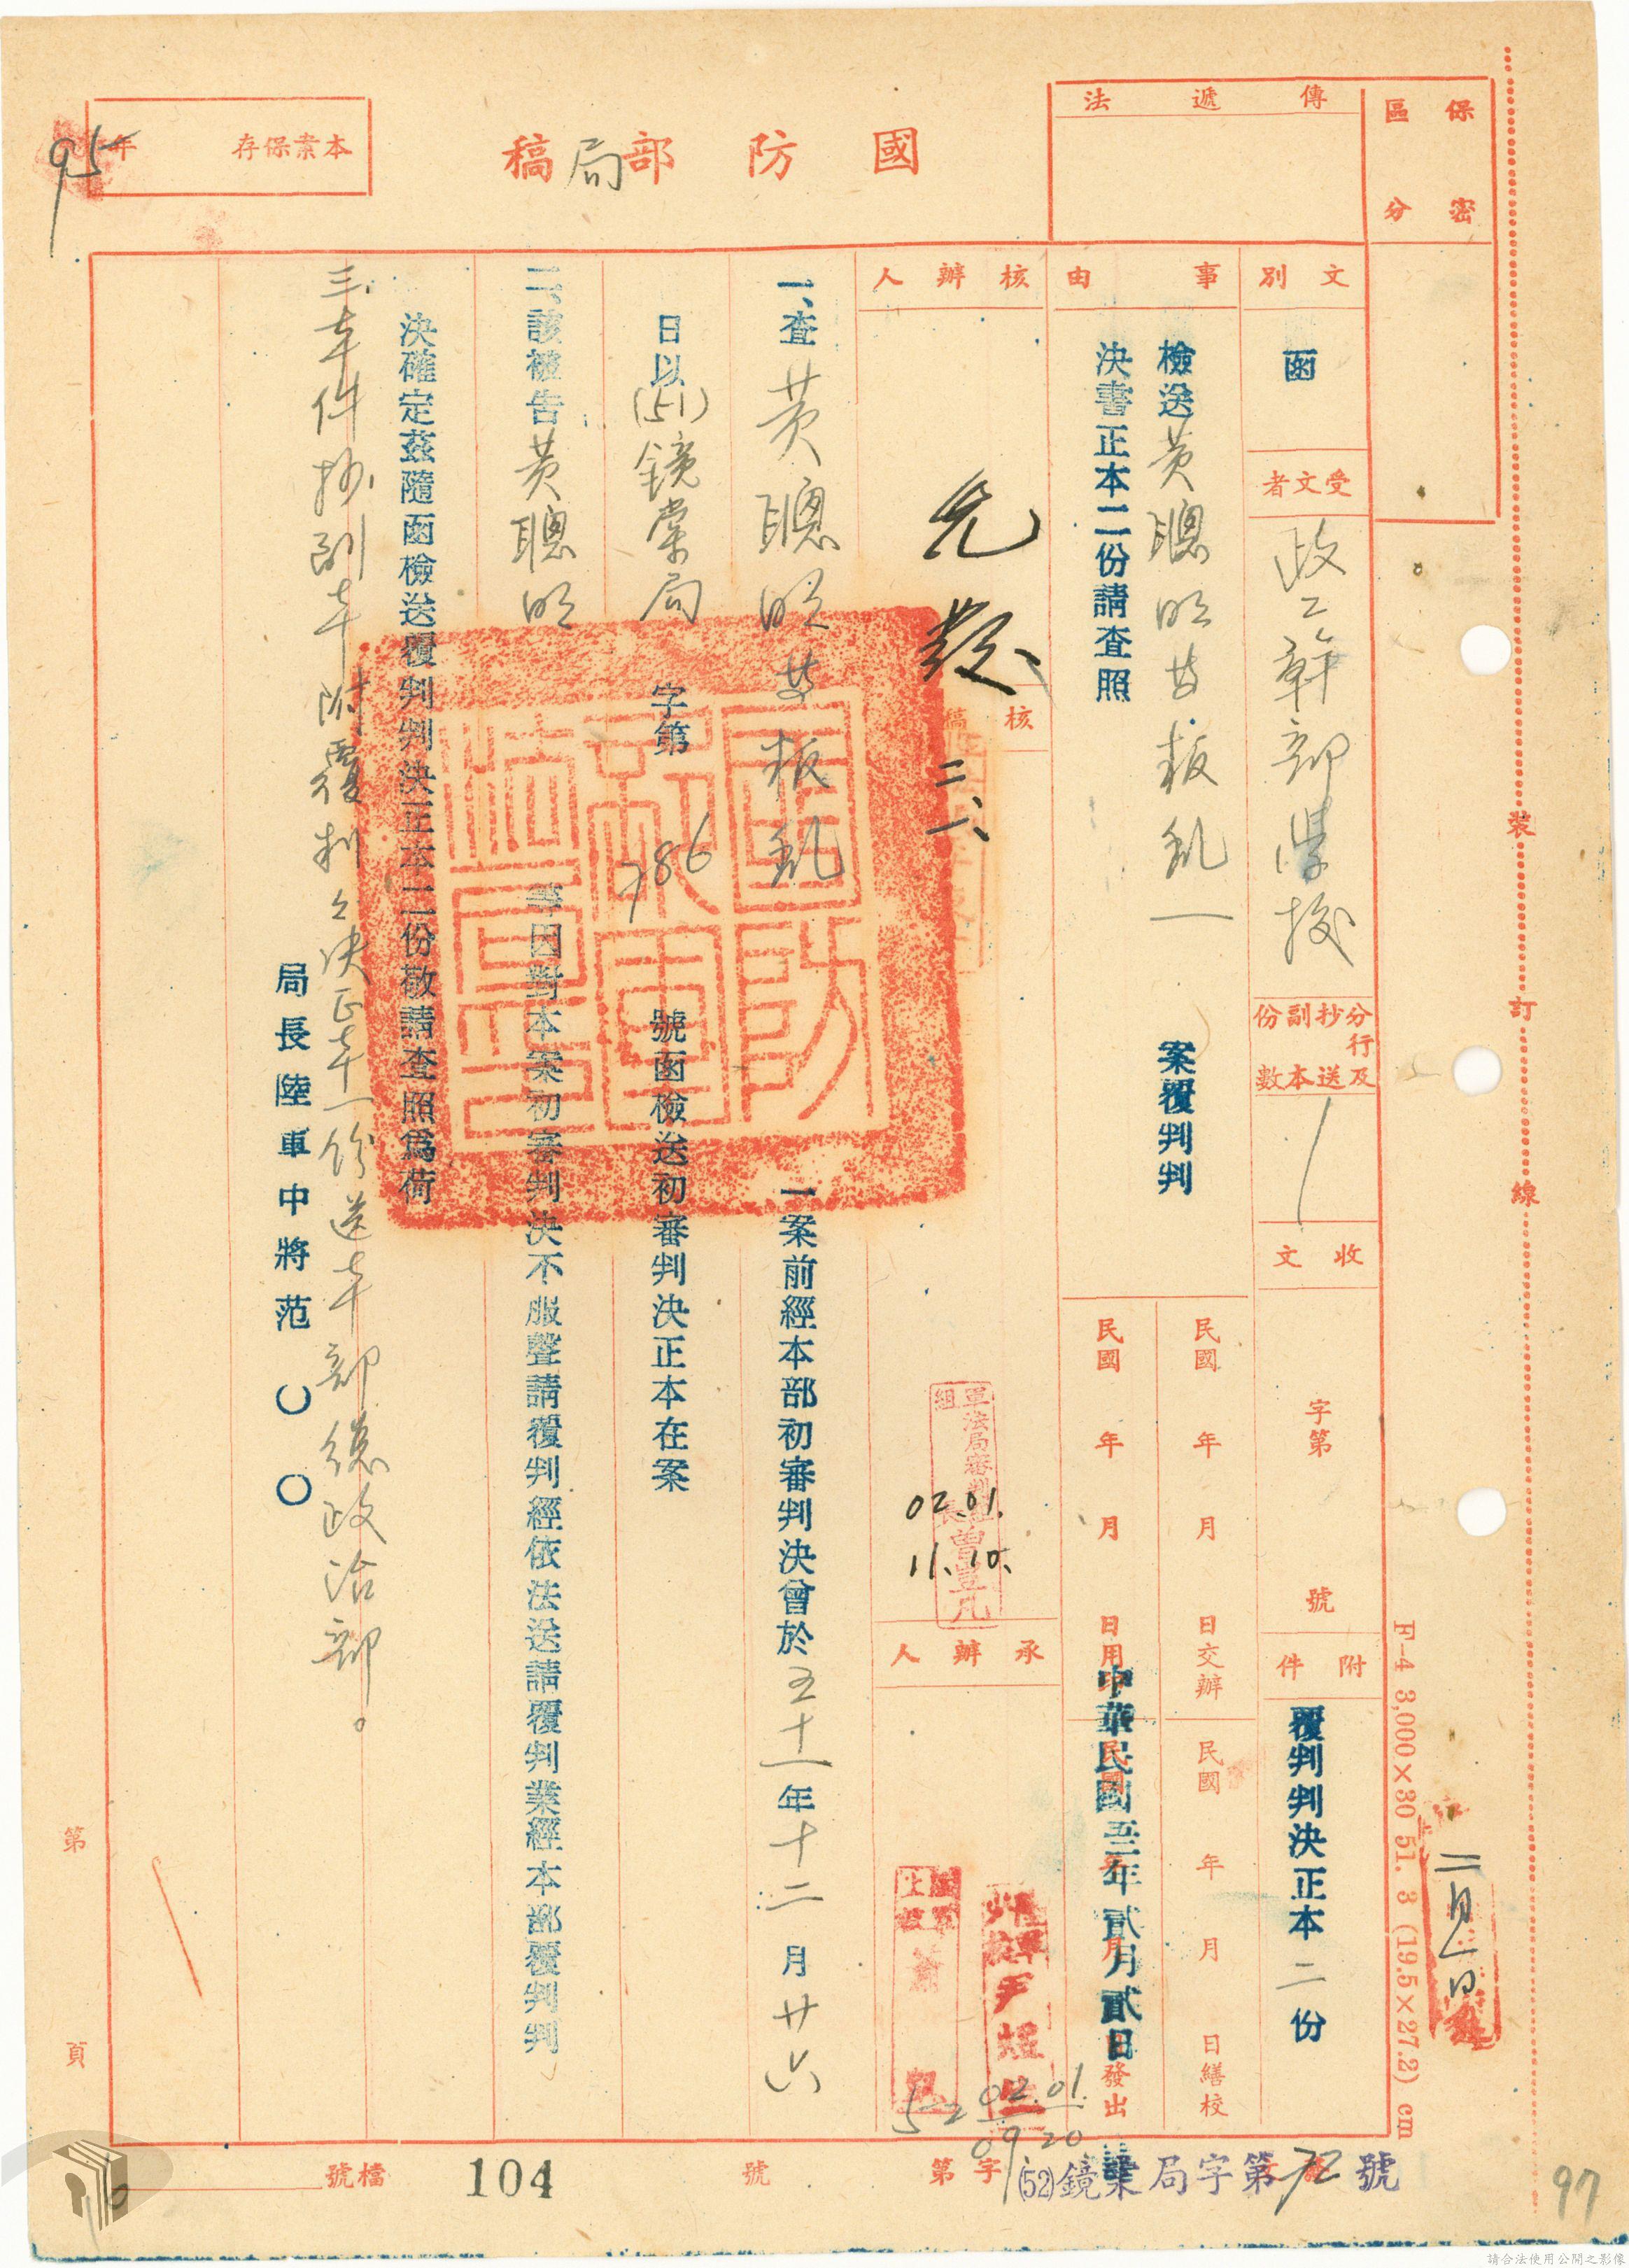 保密
區分
傳遞法
國防部局稿
本案保存
年
95
文別
函
受文者
政工幹部學校
分行及
抄送
副本
份數
1
收文
字第
號
附件
覆判判決正本二份
事由
檢送黃聰明等叛亂一案覆判判
決書正本二份請查照
民國 年 月 日交辦
民國 年 月 日繕校
民國 年 月 日用印
中華民國五二年貳月貳日
發出
核辦人
核稿
三、二、
軍法局審判組
組長曾豈凡
02.01.
11.10.
承辦人
52
02.01.
09 20
一、查黃聰明等叛亂一案前經本部初審判決曾於五十一年十二月廿六
日以(51)鏡棠局字第786號函檢送初審判決正本在案
二、該被告黃聰明等因對本案初審判決不服聲請覆判經依法送請覆判業經本部覆判判
決確定茲隨函檢送覆判判決正本二份敬請查照為荷
三、本件抄副本附覆判判決正本一份送本部總政治部。
局長陸軍中將范〇〇
國防部軍法局印
裝訂線
F-4 3,000×30 51. 3 (19.5×27.2) cm
二月一日
第 頁
檔號
104
字第 號
(52)鏡業局字第72號
97
請合法使用公開之影像